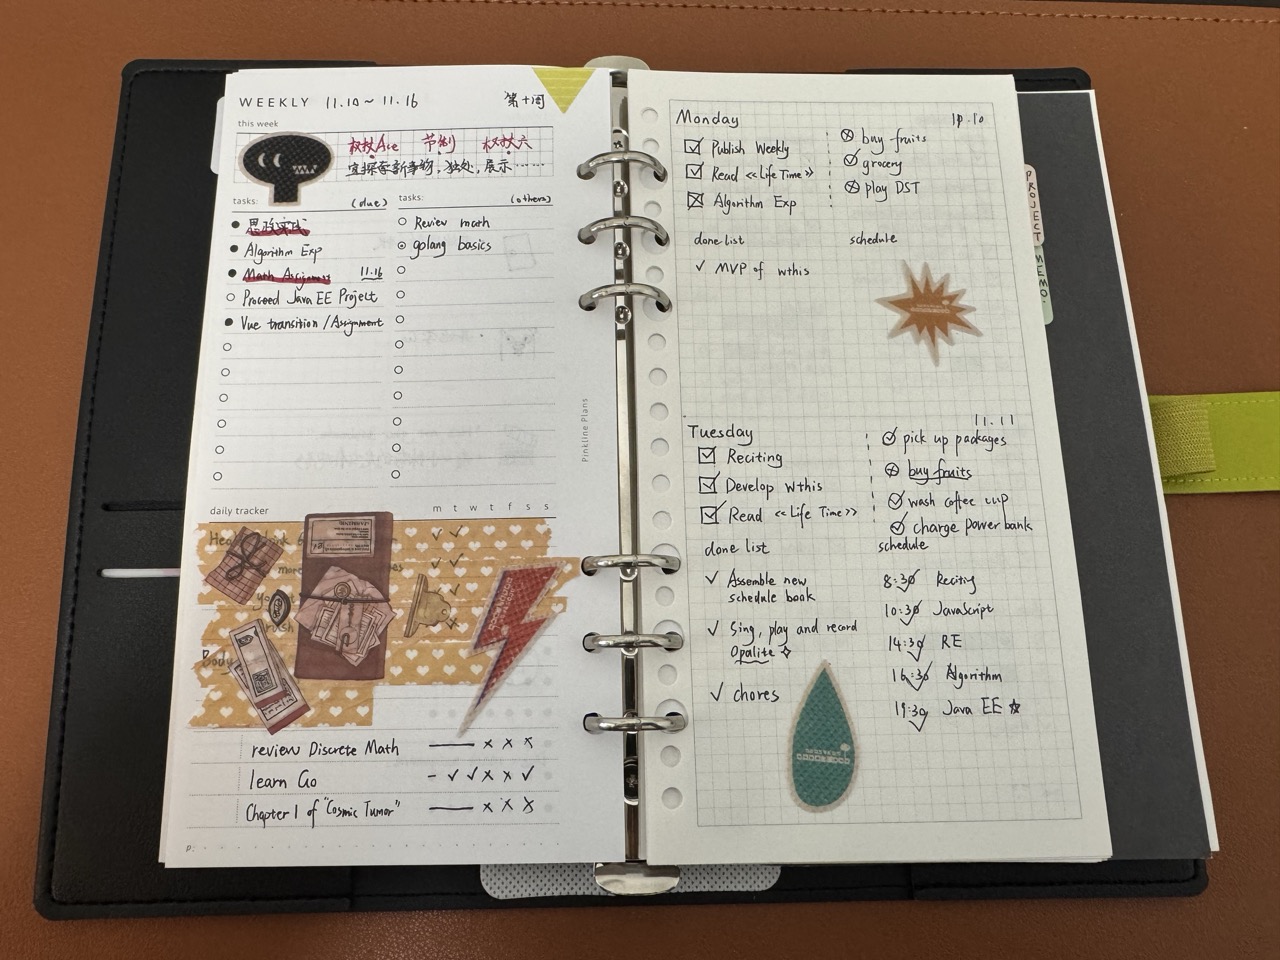 WEEKLY 11.10 ~ 11.16 第十周
this week
权杖Ace 节制 权杖六
宜探索新事物，独处，展示……
tasks: (due)
思政实践
Algorithm Exp
Math Assignment 11.16
Proceed Java EE Project
Vue transition / Assignment
tasks: (others)
Review math
golang basics
Pinkline Plans
daily tracker m t w t f s s
review Discrete Math
learn Go
Chapter 1 of "Cosmic Tumor"
p.
Monday
Publish Weekly
Read <<Life Time>>
Algorithm Exp
buy fruits
grocery
play DST
done list
✓ MVP of wthis
schedule
Tuesday 11.11
Reciting
Develop wthis
Read <<Life Time>>
pick up packages
buy fruits
wash coffee cup
charge power bank
done list
✓ Assemble new
schedule book
✓ Sing, play and record
Opalite
✓ chores
schedule
8:30 Reciting
10:30 JavaScript
14:30 RE
16:30 Algorithm
19:30 Java EE ☆
PROJECT
MEMO.